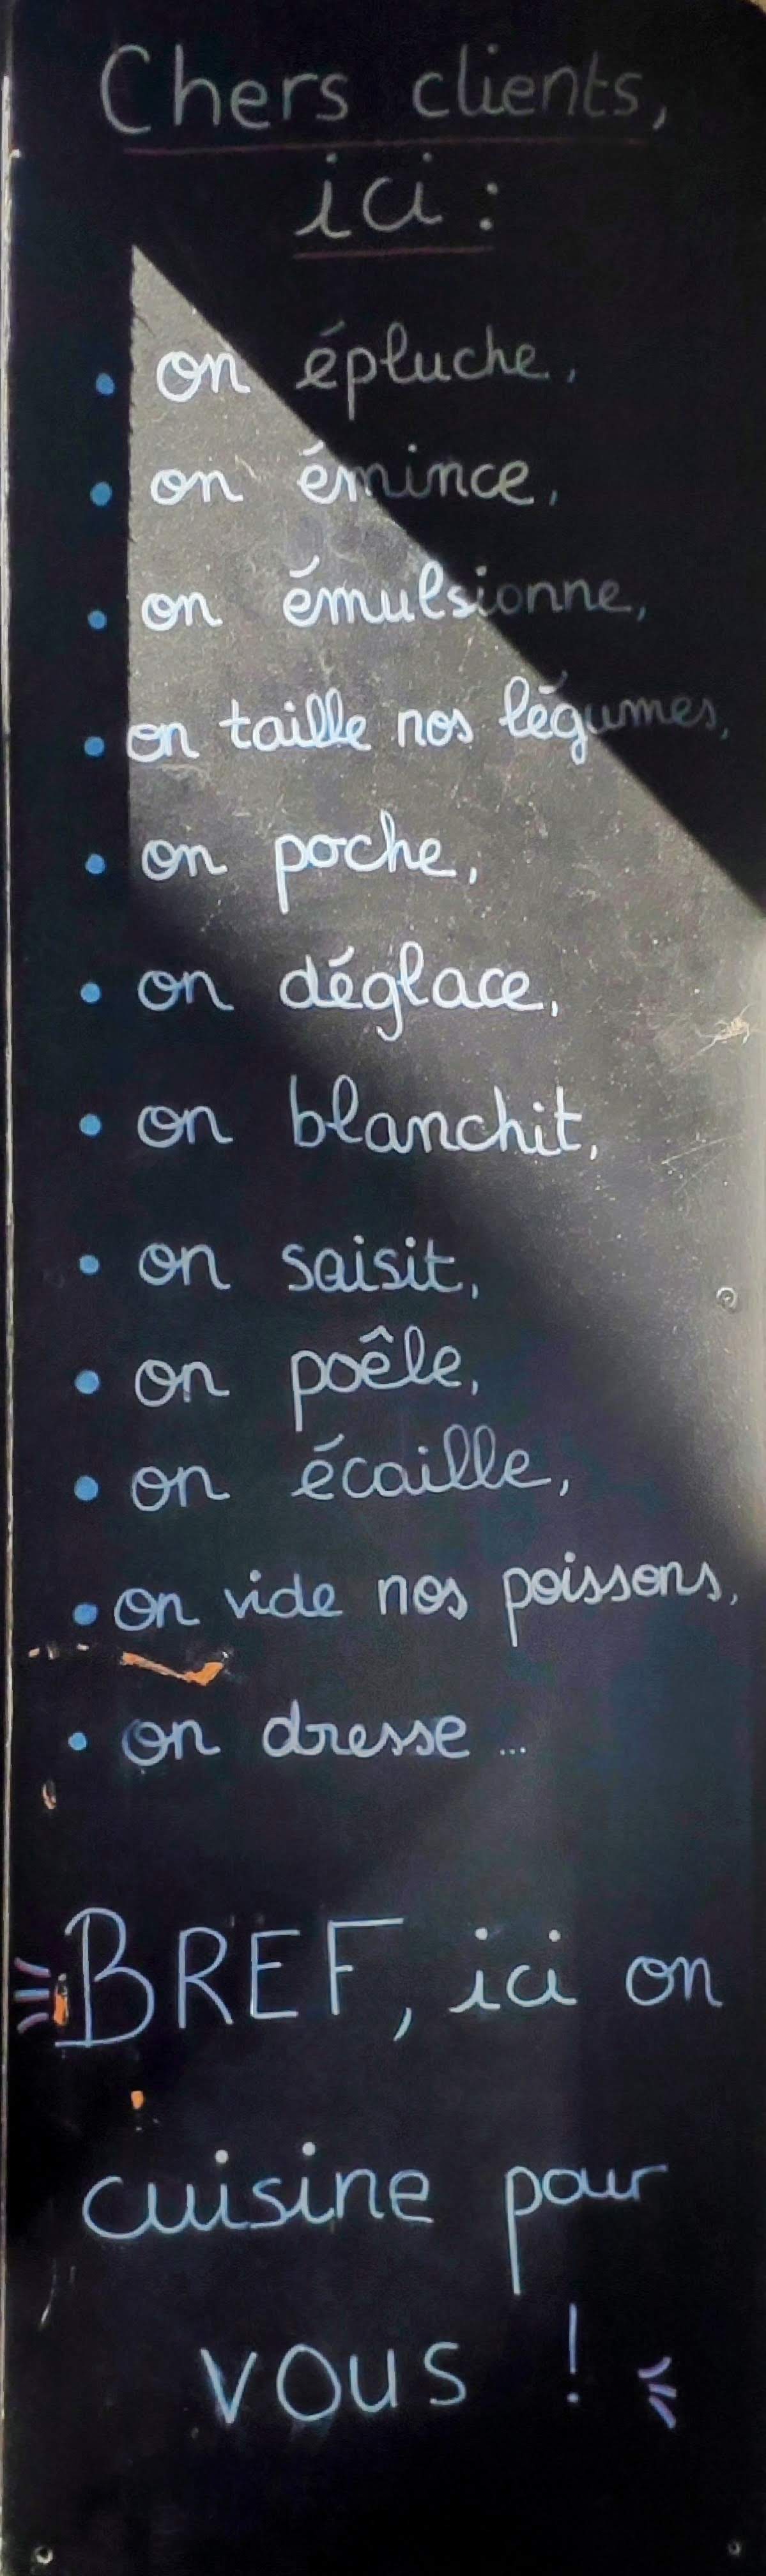 Chers clients,
ici :
• on épluche,
• on émince,
• on émulsionne,
• on taille nos légumes,
• on poche,
• on déglace,
• on blanchit,
• on saisit,
• on poêle,
• on écaille,
• on vide nos poissons,
• on dresse ...
BREF, ici on
cuisine pour
vous !